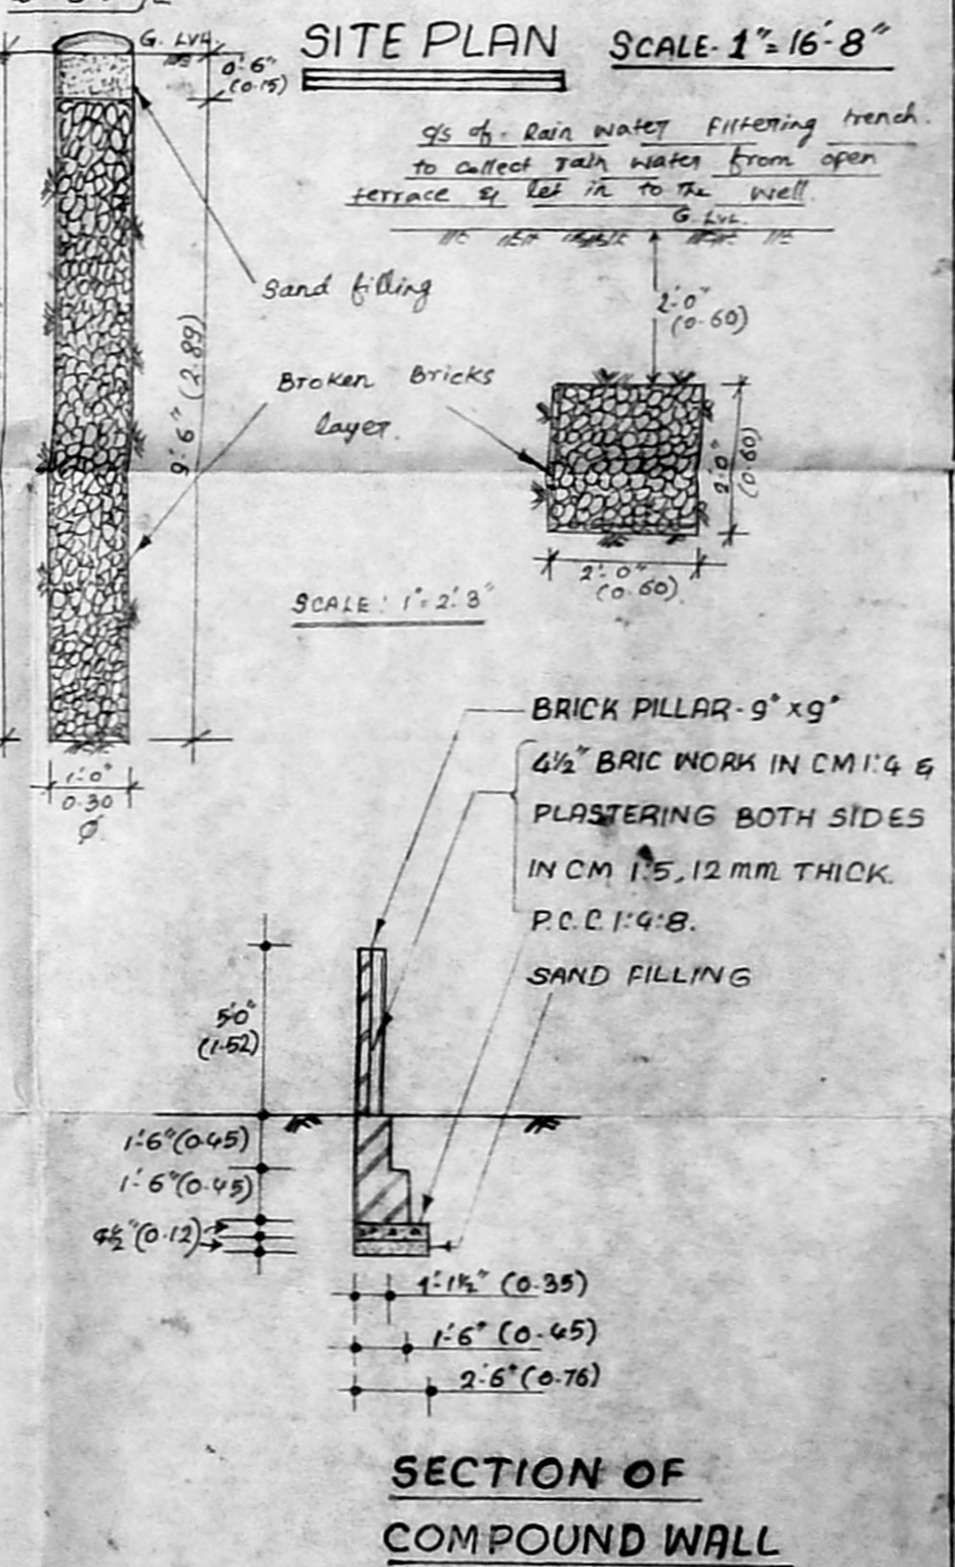 G. LVL
SITE PLAN SCALE- 1"= 16'-8"
0'-6"
(0.15)
c/s of- Rain water Filtering trench.
to collect rain water from open
terrace & let in to the well.
G. LVL.
Sand filling
2'-0"
(0.60)
Broken Bricks
layer.
9'-6" (2.89)
2'-0"
(0.60)
2'-0"
(0.60)
SCALE: 1"= 2'-3"
1'-0"
0.30
Ø
BRICK PILLAR- 9" x 9"
4½" BRIC WORK IN CM 1:4 &
PLASTERING BOTH SIDES
IN CM 1:5, 12 mm THICK.
P.C.C. 1:4:8.
SAND FILLING
5'0"
(1.52)
1'-6" (0.45)
1'-6" (0.45)
4½" (0.12)
1'-1½" (0.35)
1'-6" (0.45)
2'-6" (0.76)
SECTION OF
COMPOUND WALL